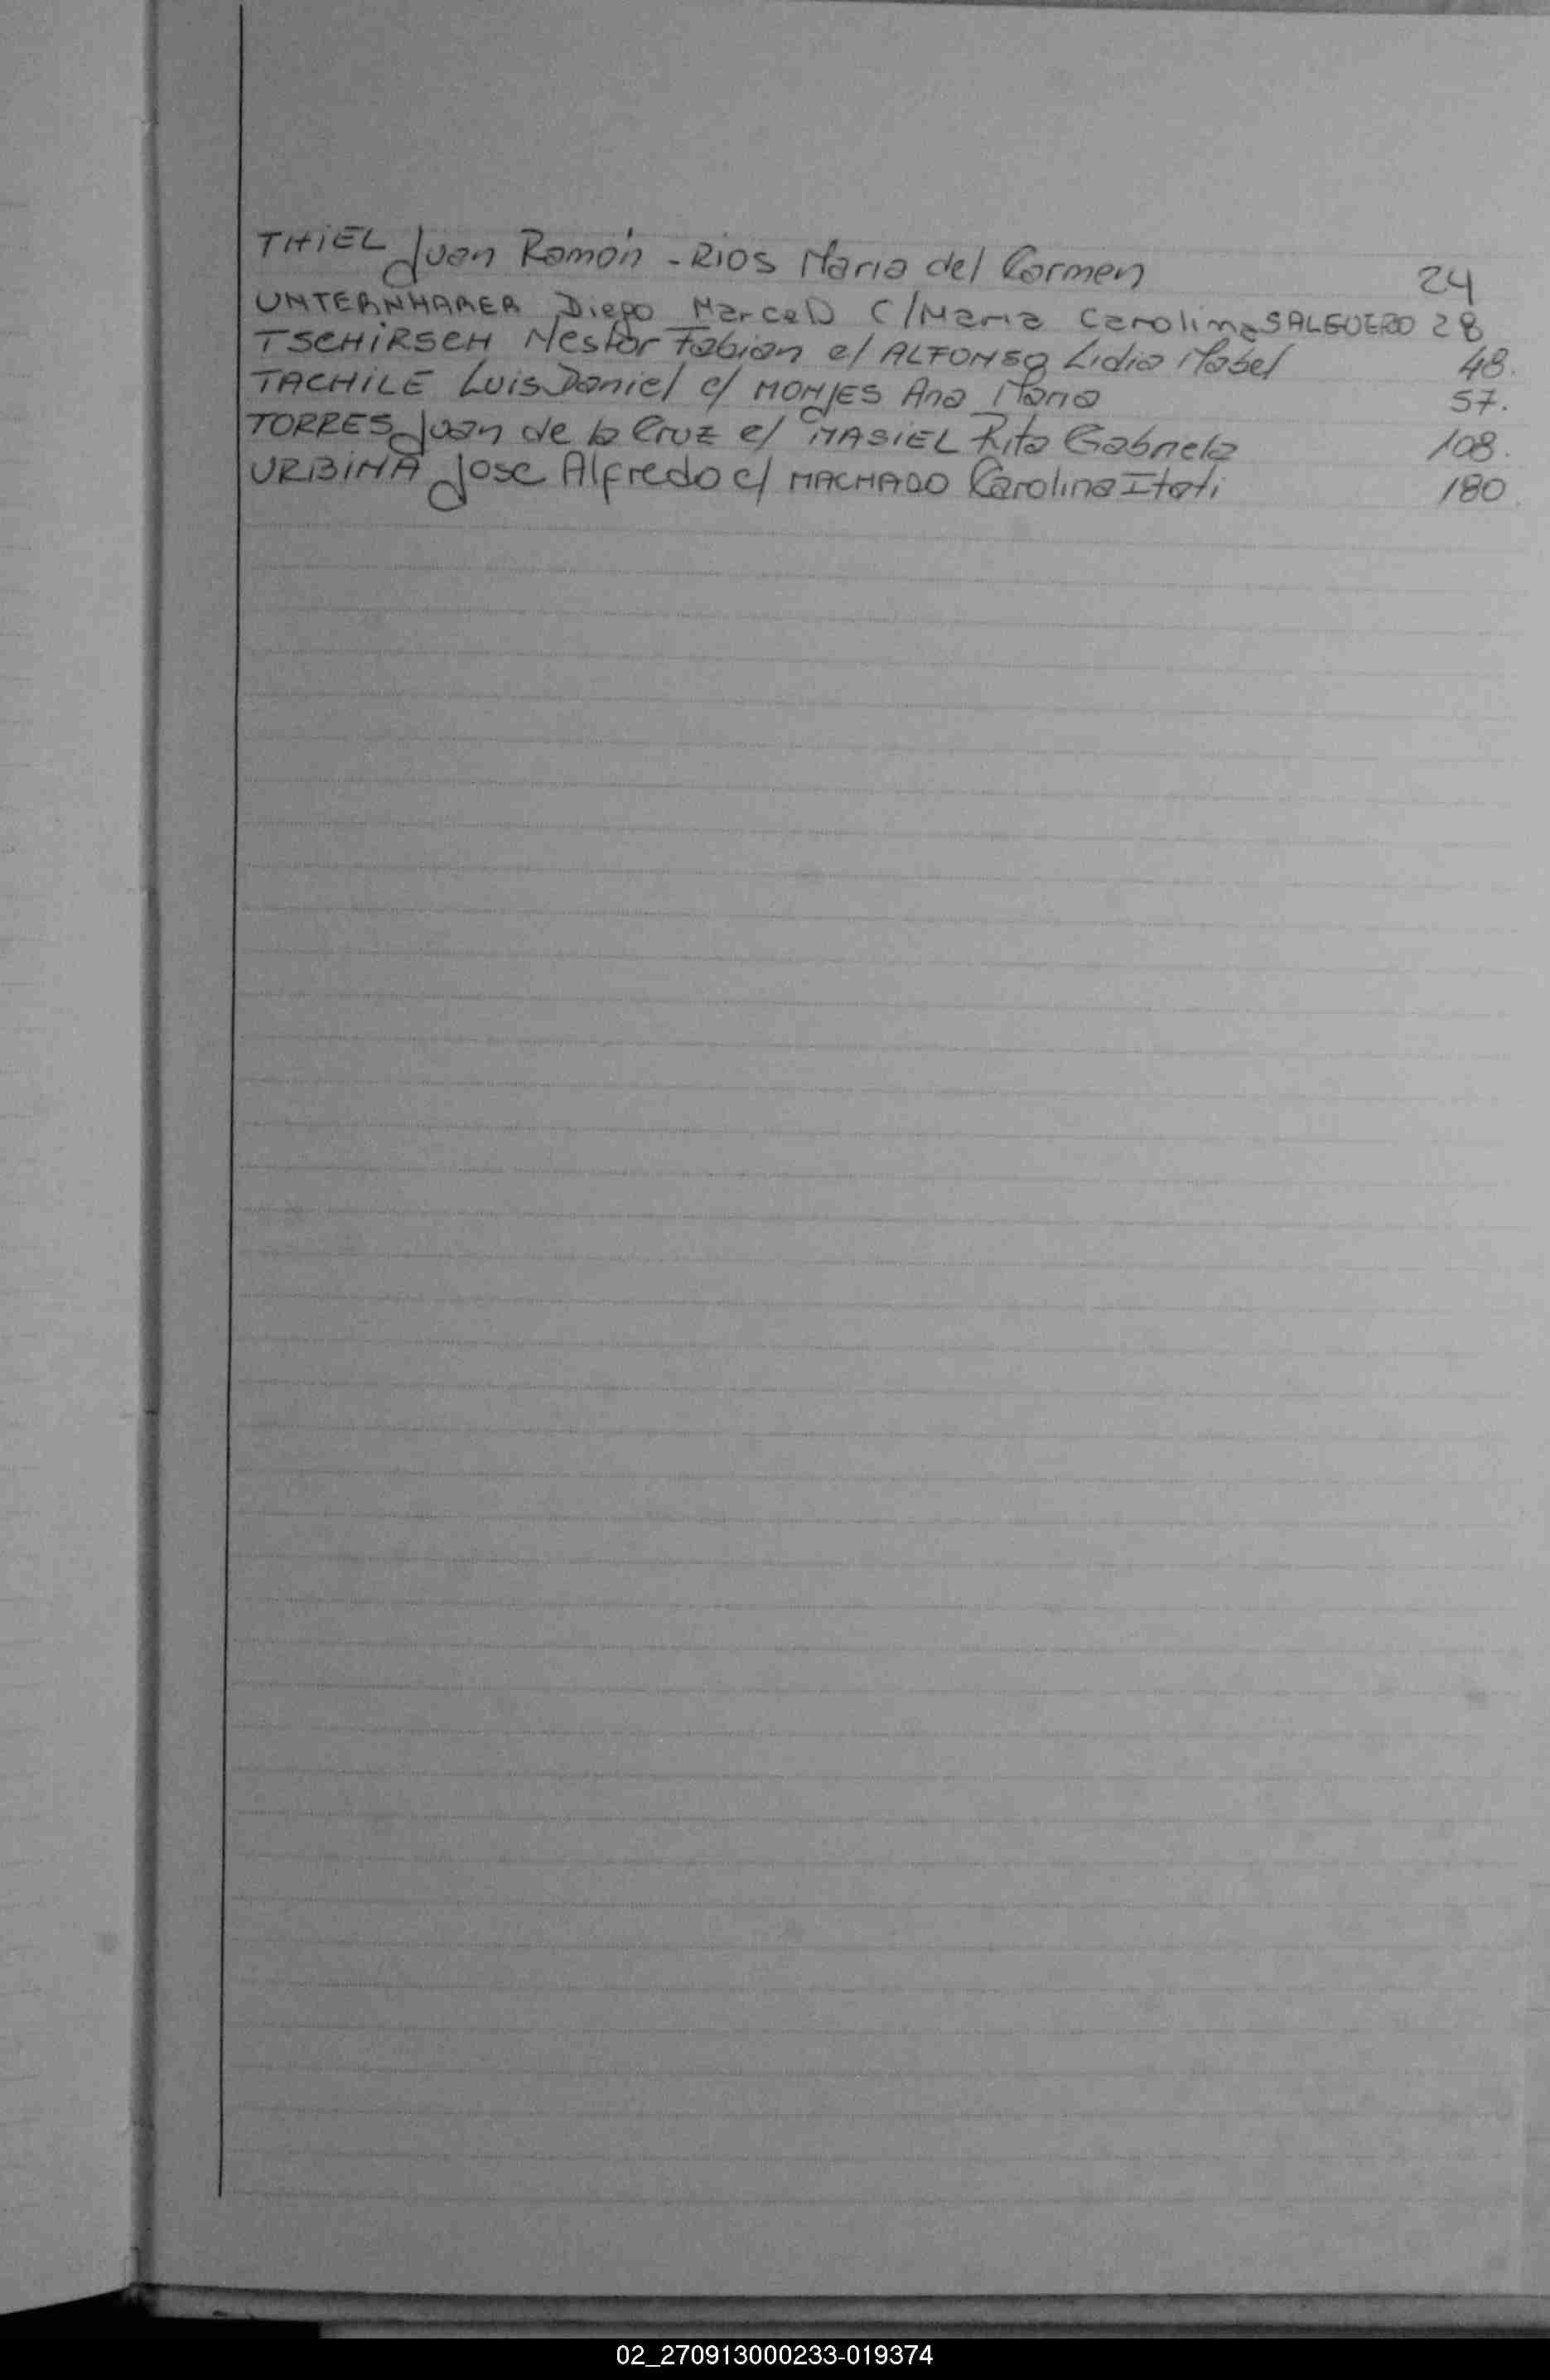 THiEL Juan Ramón - RIOS Maria del Carmen 24
UNTERNHARER Diego Marcelo C/Maria Carolina SALGUERO 28
TSCHiRSCH Nestor Fabian c/ ALFONSO Lidia Mabel 48.
TACHiLE Luis Daniel c/ MONJES Ana Maria 57.
TORRES Juan de la Cruz c/ MASiEL Rita Gabriela 108.
URBiNA Jose Alfredo c/ MACHADO Carolina Itati 180.
02_270913000233-019374